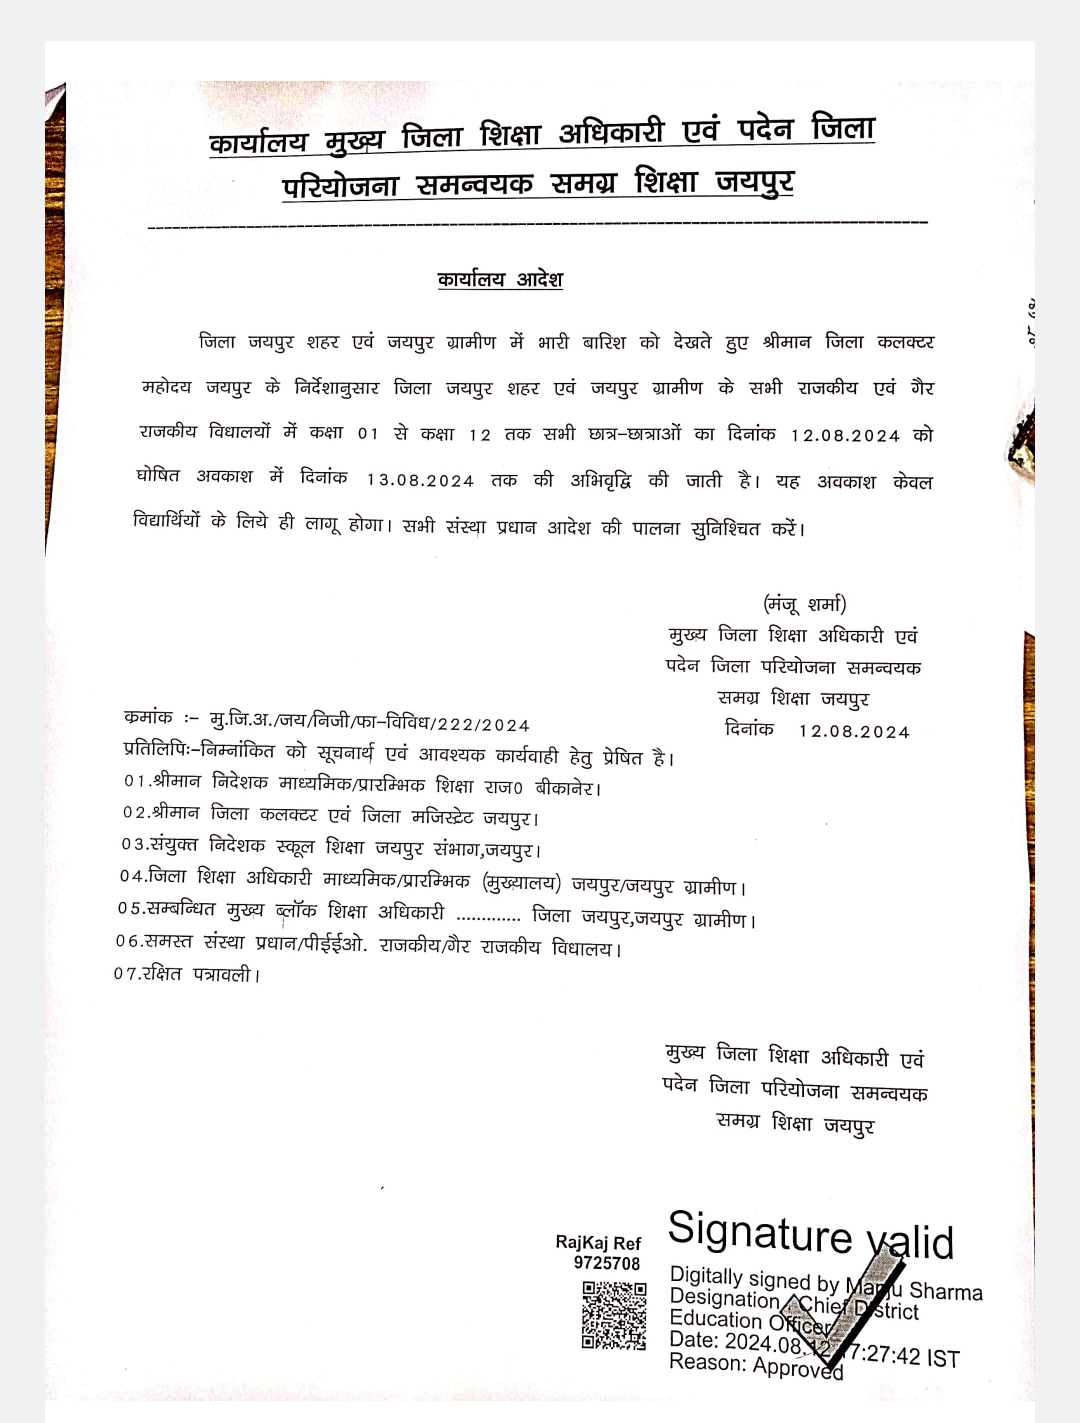 कार्यालय मुख्य जिला शिक्षा अधिकारी एवं पदेन जिला
परियोजना समन्वयक समग्र शिक्षा जयपुर
कार्यालय आदेश
जिला जयपुर शहर एवं जयपुर ग्रामीण में भारी बारिश को देखते हुए श्रीमान जिला कलक्टर
महोदय जयपुर के निर्देशानुसार जिला जयपुर शहर एवं जयपुर ग्रामीण के सभी राजकीय एवं गैर
राजकीय विधालयों में कक्षा 01 से कक्षा 12 तक सभी छात्र-छात्राओं का दिनांक 12.08.2024 को
घोषित अवकाश में दिनांक 13.08.2024 तक की अभिवृद्वि की जाती है। यह अवकाश केवल
विद्यार्थियों के लिये ही लागू होगा। सभी संस्था प्रधान आदेश की पालना सुनिश्चित करें।
(मंजू शर्मा)
मुख्य जिला शिक्षा अधिकारी एवं
पदेन जिला परियोजना समन्वयक
समग्र शिक्षा जयपुर
दिनांक 12.08.2024
क्रमांक :- मु.जि.अ./जय/निजी/फा-विविध/222/2024
प्रतिलिपिः-निम्नांकित को सूचनार्थ एवं आवश्यक कार्यवाही हेतु प्रेषित है।
01.श्रीमान निदेशक माध्यमिक/प्रारम्भिक शिक्षा राज0 बीकानेर।
02.श्रीमान जिला कलक्टर एवं जिला मजिस्ट्रेट जयपुर।
03.संयुक्त निदेशक स्कूल शिक्षा जयपुर संभाग,जयपुर।
04.जिला शिक्षा अधिकारी माध्यमिक/प्रारम्भिक (मुख्यालय) जयपुर/जयपुर ग्रामीण।
05.सम्बन्धित मुख्य ब्लॉक शिक्षा अधिकारी ............. जिला जयपुर,जयपुर ग्रामीण।
06.समस्त संस्था प्रधान/पीईईओ. राजकीय/गैर राजकीय विधालय।
07.रक्षित पत्रावली।
मुख्य जिला शिक्षा अधिकारी एवं
पदेन जिला परियोजना समन्वयक
समग्र शिक्षा जयपुर
RajKaj Ref
9725708
Signature valid
Digitally signed by Manju Sharma
Designation : Chief District
Education Officer
Date: 2024.08.12 17:27:42 IST
Reason: Approved